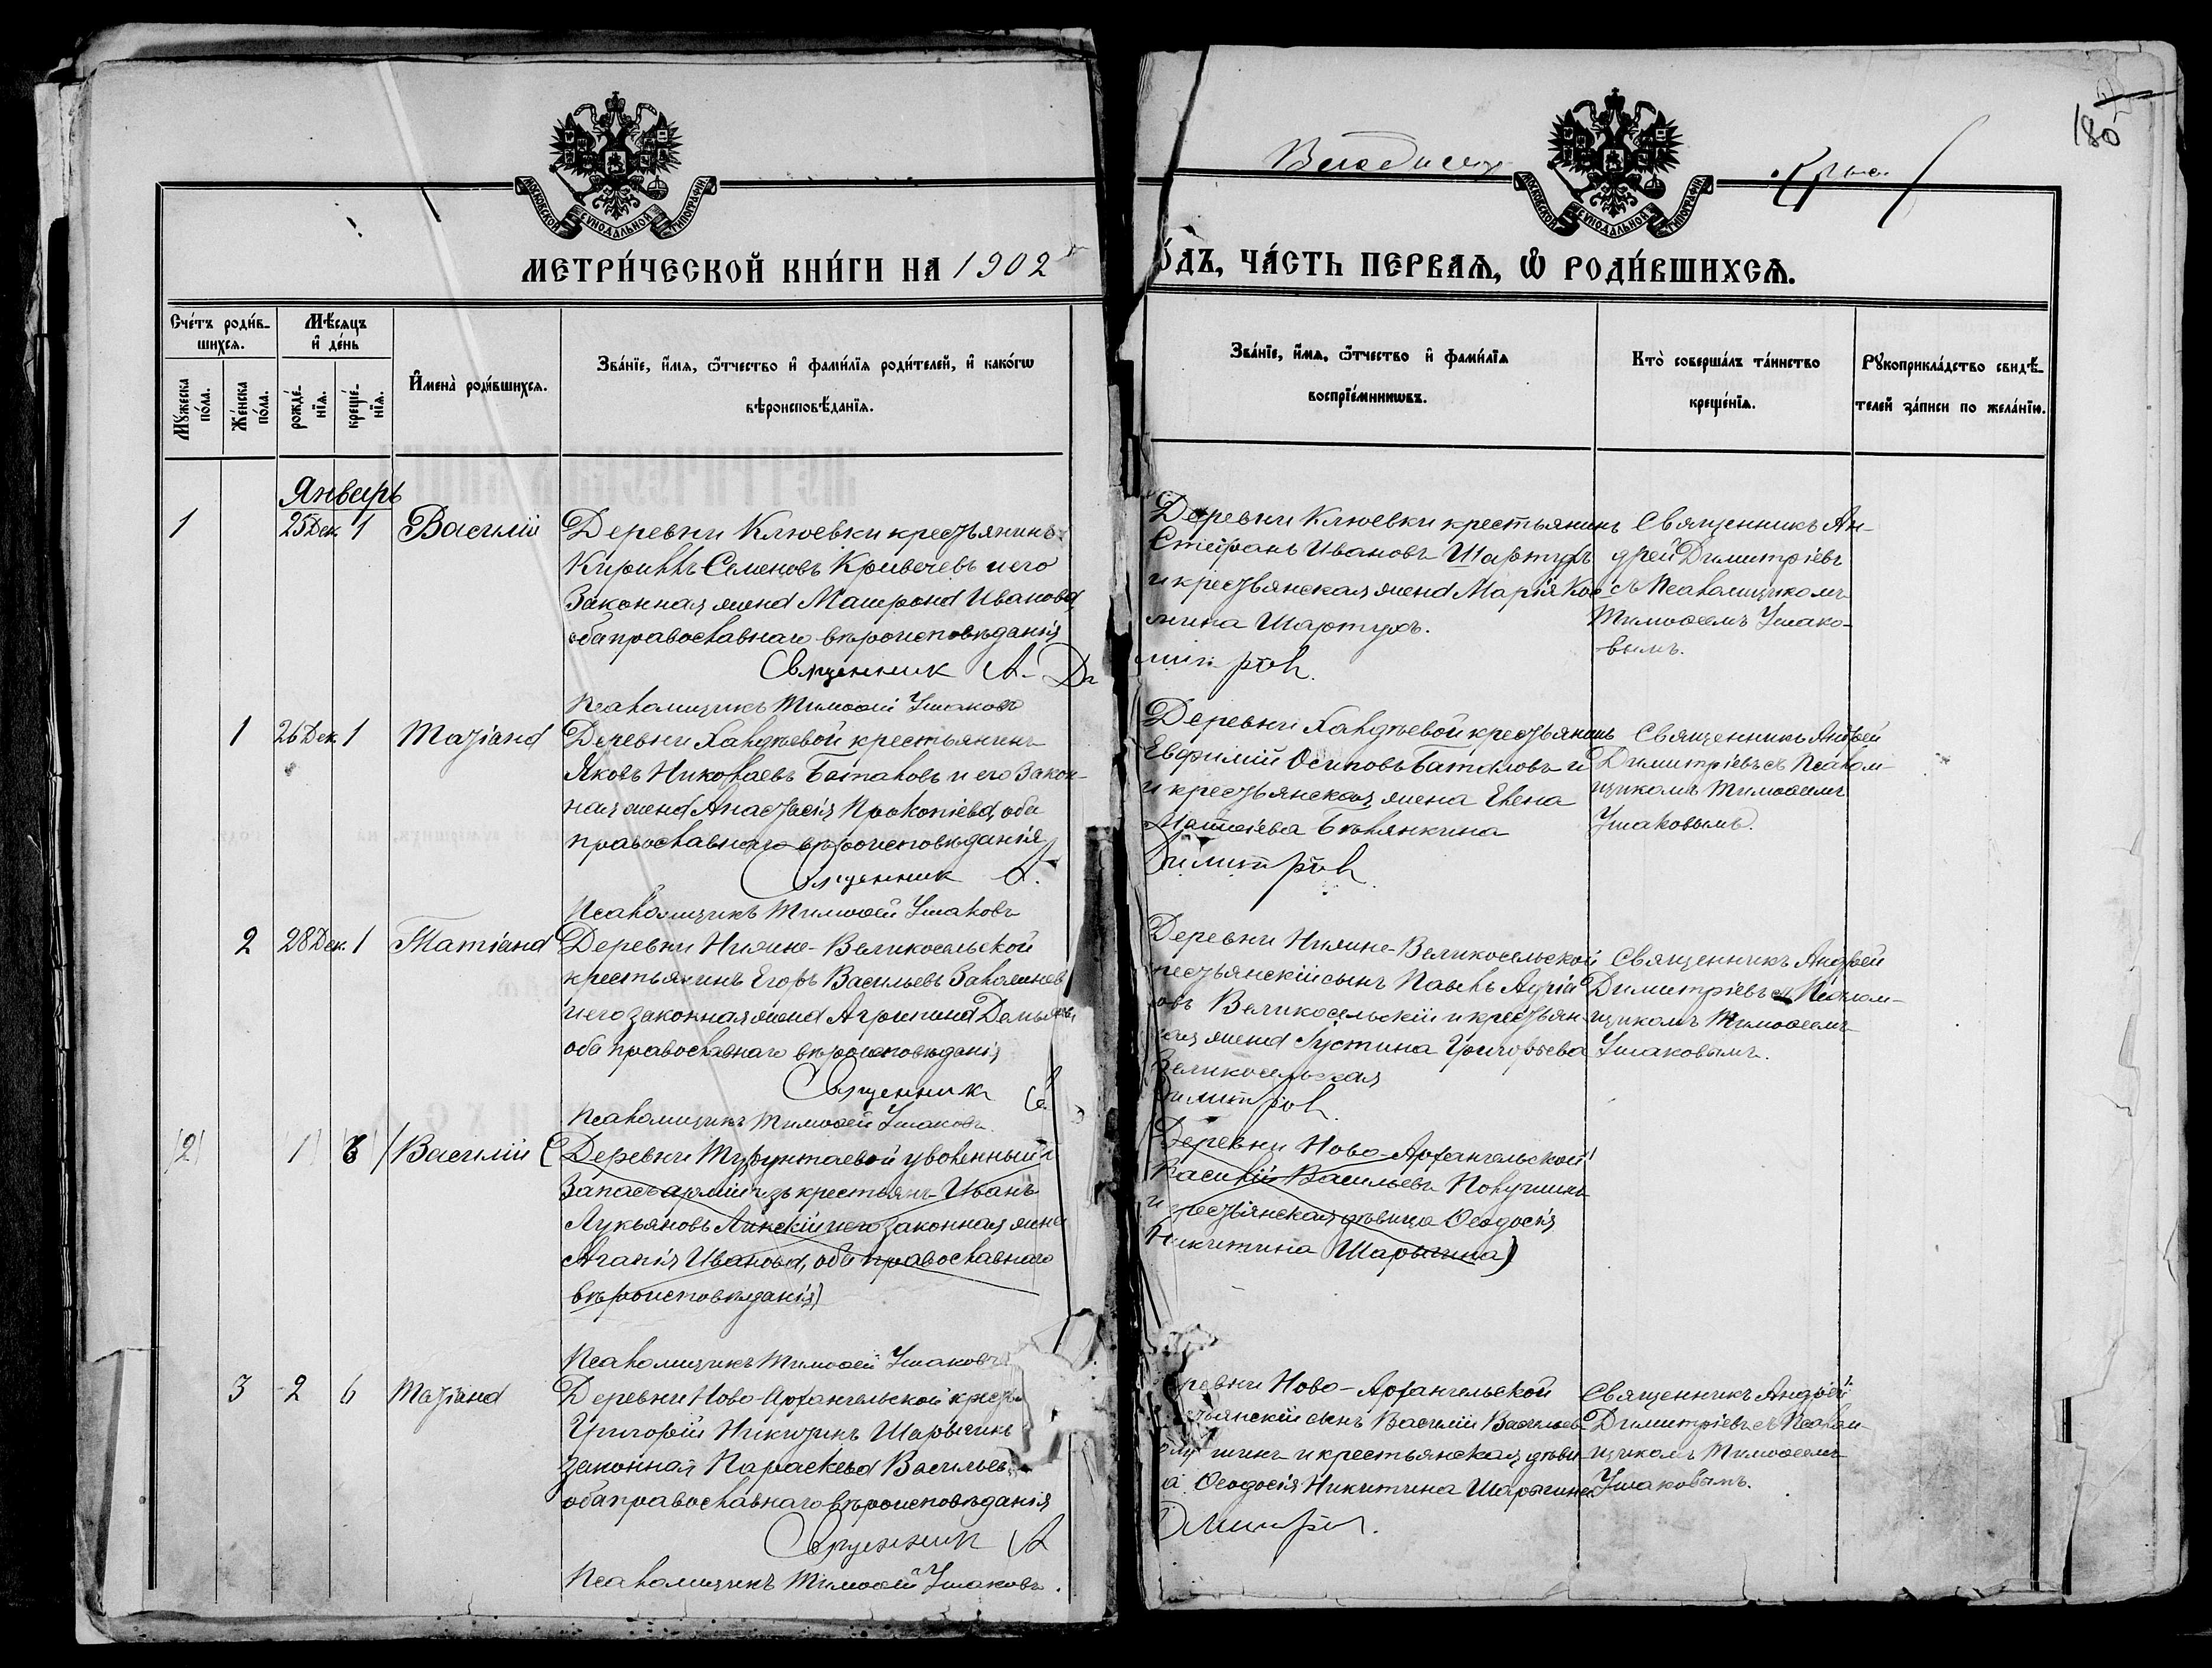 180
МОСКОВСКОЙ СУНОДАЛЬНОЙ ТИПОГРАФІИ.
МОСКОВСКОЙ СУНОДАЛЬНОЙ ТИПОГРАФІИ.
МЕТРИ́ЧЕСКОЙ КНИ́ГИ НА 1902
О́ДЪ, ЧА́СТЬ ПЕРВАѦ, Ѡ РОДИ́ВШИХСѦ.
Сче́тъ роди́в-
шихсѧ.
Мꙋжеска по́ла.
Же́нска по́ла.
Мѣ́сѧцъ
и҆ де́нь
рожде́нїѧ.
креще́нїѧ.
И҆мена̀ роди́вшихсѧ.
Зва́нїе, и҆́мѧ, ѻ҆́тчество и҆ фами́лїѧ роди́телей, и҆ како́гѡ
вѣроисповѣ́данїѧ.
Зва́нїе, и҆́мѧ, ѻ҆́тчество и҆ фами́лїѧ
воспрїе́мникѡвъ.
Кто̀ соверша́лъ та́инство
креще́нїѧ.
Рꙋкоприкла́дство свидѣ́-
телей за́писи по жела́нїю.
Январь
1 25 Дек. 1 Василій
Деревни Клюевки крестьянинъ
Кириллъ Семеновъ Кривечевъ и его
законная жена Матрона Иванова
оба православнаго вѣроисповѣданія
Священник А. Ди
Псаломщикъ Тимоѳей Ушаковъ
Деревни Клюевки крестьянинъ
Стефанъ Ивановъ Шартухъ
и крестьянская жена Марія Кос
мина Шартухъ.
митров.
Священникъ Ан-
дрей Димитріевъ
съ Псаломщикомъ
Тимоѳеемъ Ушако-
вымъ.
1 26 Дек. 1 Татіана
Деревни Хандѣевой крестьянинъ
Яковъ Николаевъ Баталовъ и его закон-
ная жена Анастасія Прокопіева, оба
православнаго вѣроисповѣданія
Священник А.
Псаломщикъ Тимоѳей Ушаковъ
Деревни Хандѣевой крестьянинъ
Евфимій Осиповъ Баталовъ и
и крестьянская жена Елена
Матѳіева Бѣлянкина
Димитров
Священникъ Андрей
Димитріевъ съ Псалом-
щикомъ Тимоѳеемъ
Ушаковымъ.
2 28 Дек. 1 Татіана
Деревни Нижне-Великосельской
крестьянинъ Егоръ Васильевъ
и его законная жена Агрипина
оба православнаго вѣроисповѣданія
Священник
Псаломщикъ Тимоѳей Ушаковъ
Деревни Нижне-Великосельской
рестьянскій сынъ Павелъ
овъ Великосельскій и крестьян-
ская жена Іустина Григорьева
Великосельская
Димитров.
Священникъ Андрей
Димитріевъ съ Псалом-
щикомъ Тимоѳеемъ
Ушаковымъ.
(2) 1 6 Василій
(Деревни Турунтаевой уволенный
запасъ арміи изъ крестьянъ Иванъ
Лукьяновъ Линскій и его законная жена
Агапія Иванова, оба православнаго
вѣроисповѣданія)
Псаломщикъ Тимоѳей Ушаковъ
Деревни Ново-Архангельской
Василій Васильевъ
и крестьянская дѣвица Ѳеодосія
Никитина Шарыгина)
3 2 6 Татіана
Деревни Ново-Архангельской крестья
Григорій Никитинъ Шарыгинъ
законная Параскева Васильев
оба православнаго вѣроисповѣданія
Священник А
Псаломщикъ Тимоѳей Ушаковъ.
ревни Ново-Архангельской
стьянскій сынъ Василій Васильевъ
шинъ и крестьянская дѣви
ца Ѳеодосія Никитина Шарыгина.
Димитров.
Священникъ Андрей
Димитріевъ съ Псалом-
щикомъ Тимоѳеемъ
Ушаковымъ.